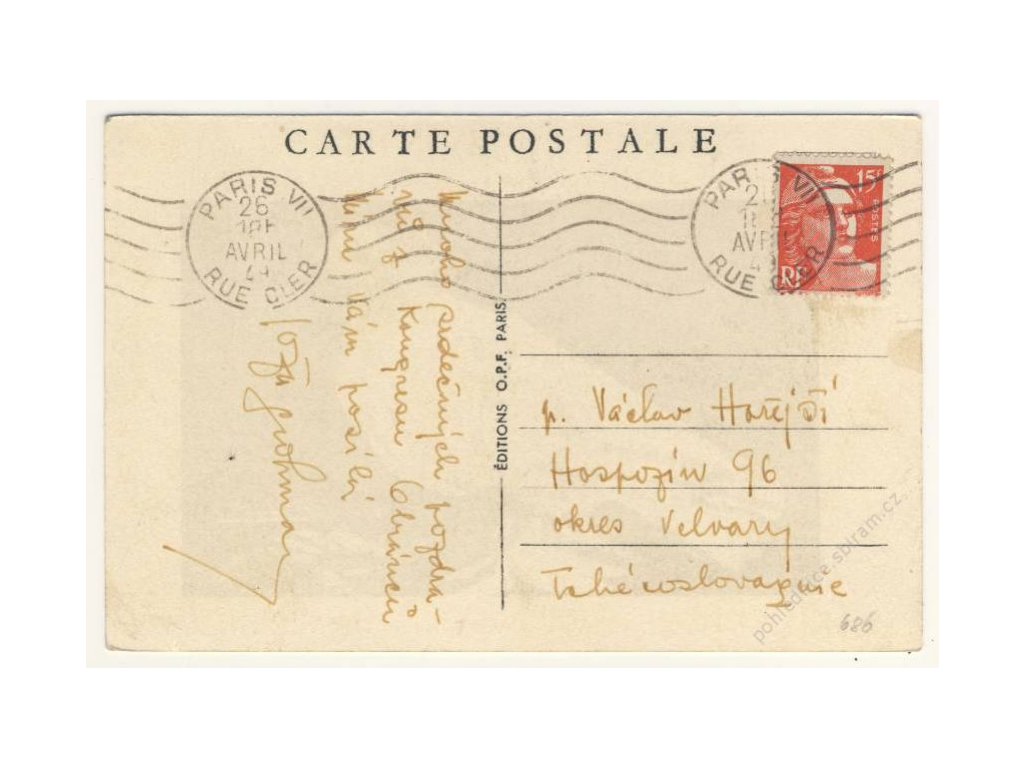 CARTE POSTALE
PARIS VII
26
AVRIL
RUE CLER
PARIS VII
AVRIL
RUE CLER
15F
POSTES
RF
Mnoho srdečných pozdra-
vů z Kongresu Obránců
míru Vám posílá
Grohman
ÉDITIONS O.P.F. PARIS
p. Václav Hořejší
Hospozín 96
okres Velvary
Tchécoslovaquie
686
pohlednice.sbiram.cz